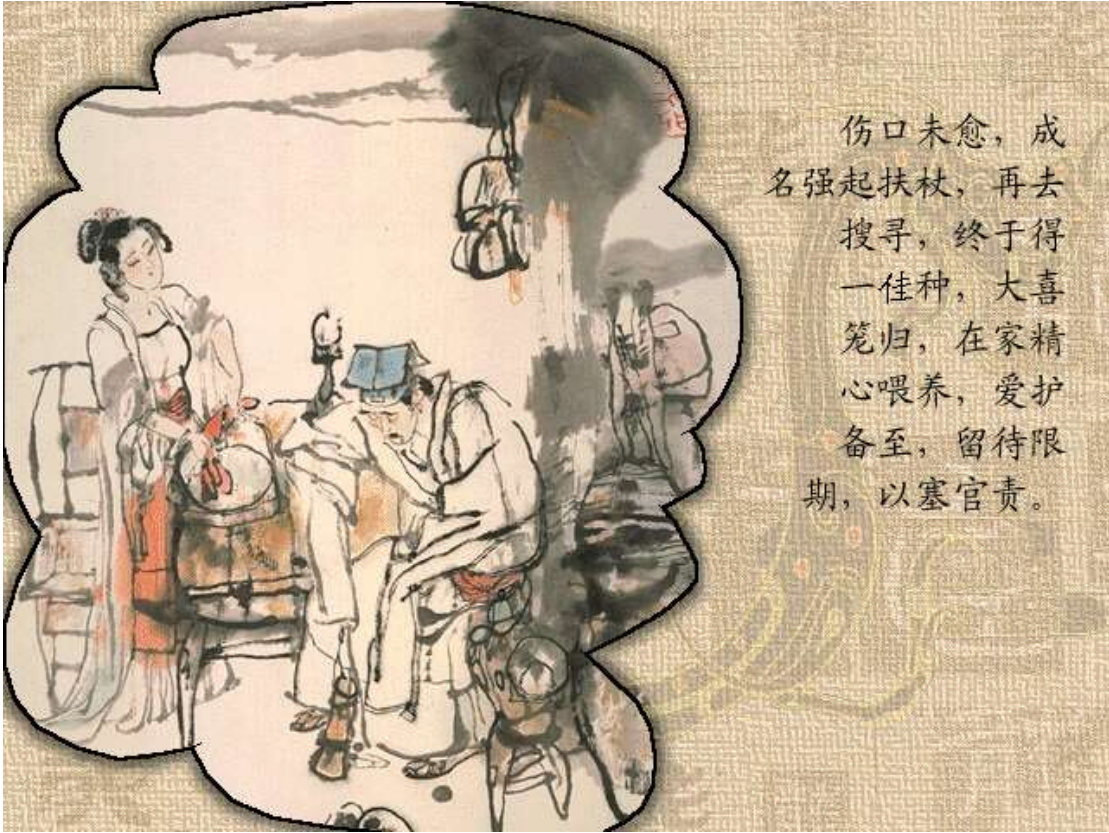 伤口未愈，成
名强起扶杖，再去
搜寻，终于得
一佳种，大喜
笼归，在家精
心喂养，爱护
备至，留待限
期，以塞官责。